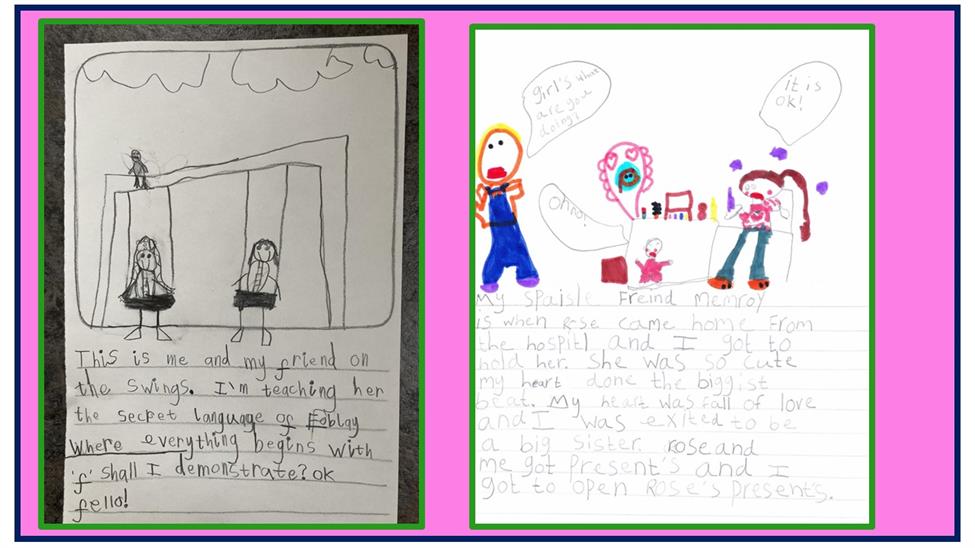 This is me and my friend on
the swings. I'm teaching her
the secret language of
where everything begins with
'f' shall I demonstrate? ok
fello!
girl's what
are you
doing?
it is
ok!
oh no!
My spaisle Freind memroy
is when Rose came home From
the hospitl and I got to
hold her. She was so cute
my heart done the biggist
beat. My heart was fall of love
and I was exited to be
a big sister. rose and
me got present's and I
got to open Rose's present's.